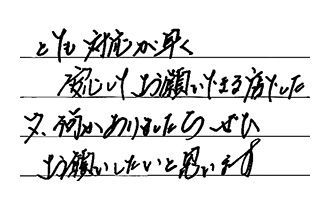 とても対応が早く
安心してお願いできる店でした
又、何かありましたらぜひ
お願いしたいと思います